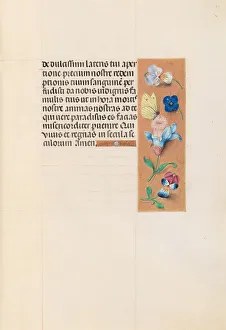 de dulcissimi lateris tui aper
tione precium nostre redem
ptionis tuum sanguinem per
fudisti da nobis indignis fa
mulis tuis ut in hora mortis
nostre animas nostras ad
te querere paradisus es facias
misericorditer pervenire Qui
vivis et regnas in secula se
culorum Amen